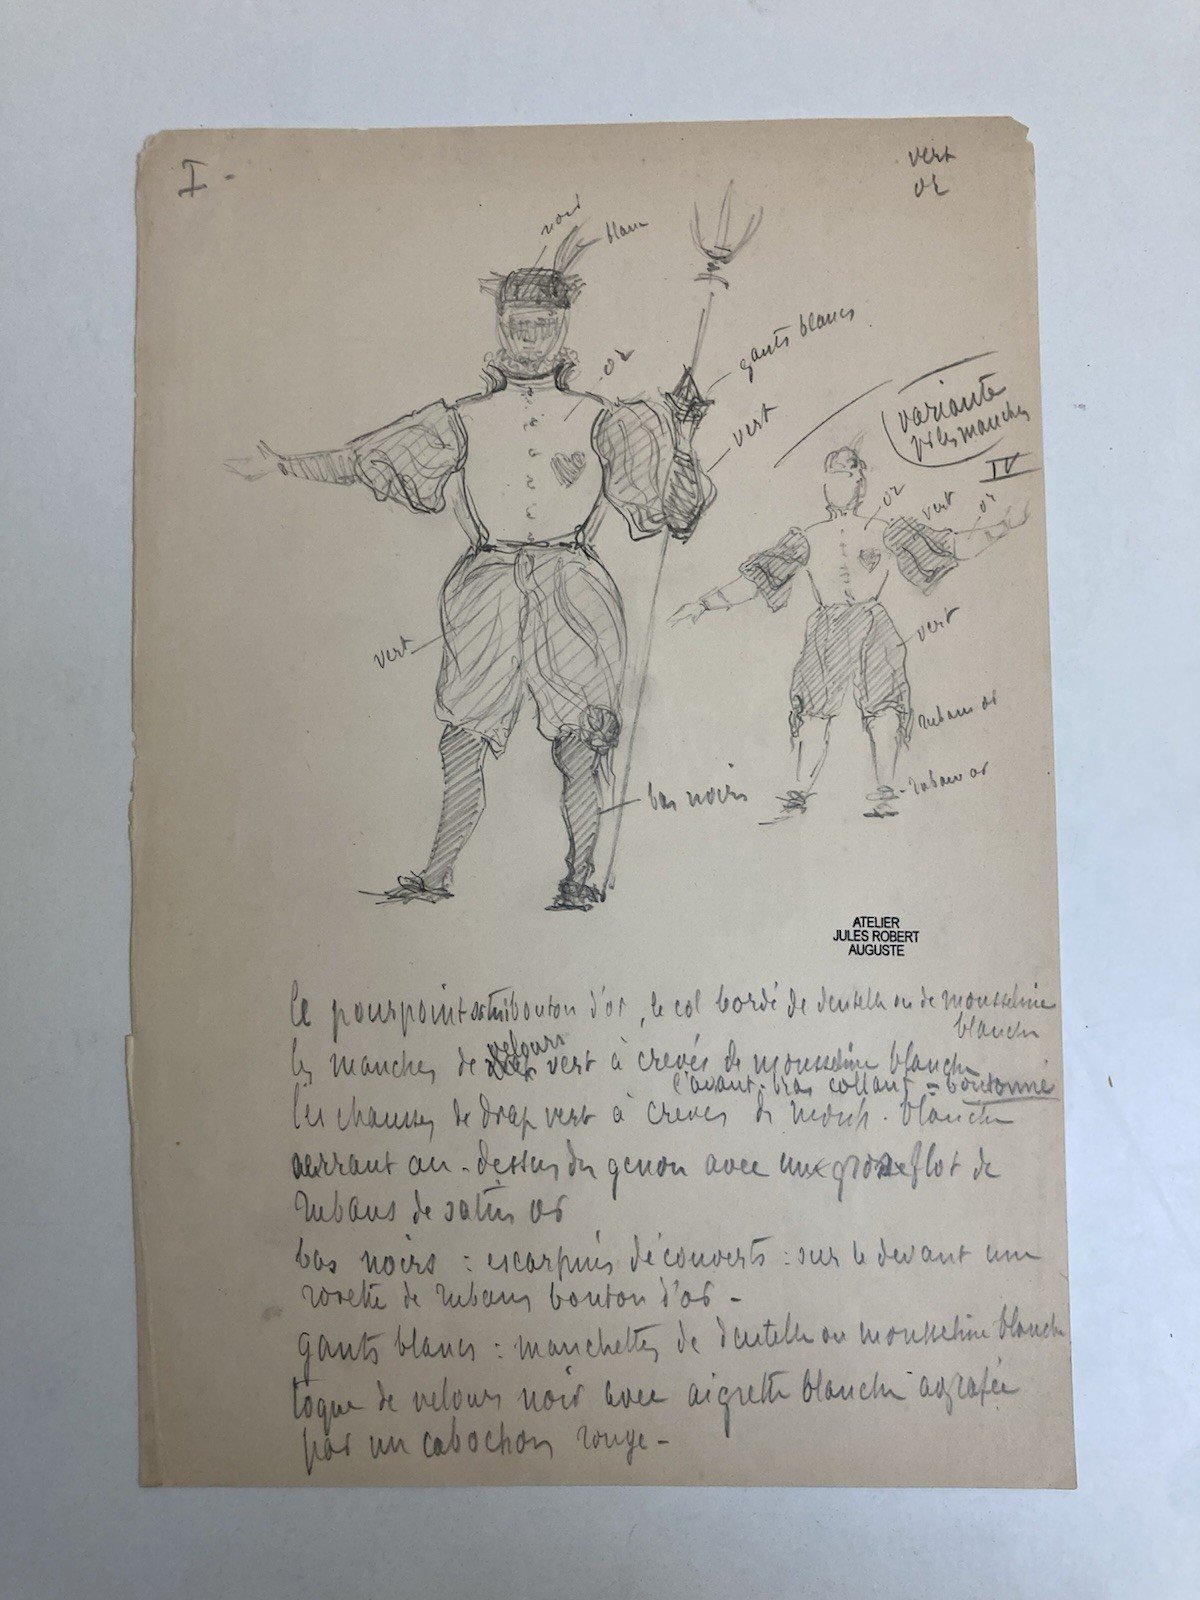 I -
vert
or
noir
blanc
or
gants blancs
vert
variante
ds les manches
IV
or
vert
or
vert
vert
rubans or
ruban or
bas noirs
ATELIER
JULES ROBERT
AUGUSTE
le pourpoint satin bouton d'or, le col bordé de dentelle ou de mousseline
blanche
les manches de velours vert à crevés de mousseline blanche
l'avant-bras collant = boutonné
les chausses de drap vert à crevés de mouss. blanche
serrant au-dessus du genou avec un gros flot de
rubans de satin or
bas noirs : escarpins découverts : sur le devant une
rosette de rubans bouton d'or -
gants blancs : manchettes de dentelle ou mousseline blanche
toque de velours noir avec aigrette blanche agrafée
par un cabochon rouge -